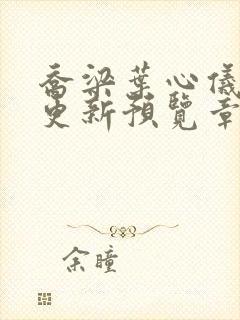 喬梁葉心儀
更新預覽章
余瞳